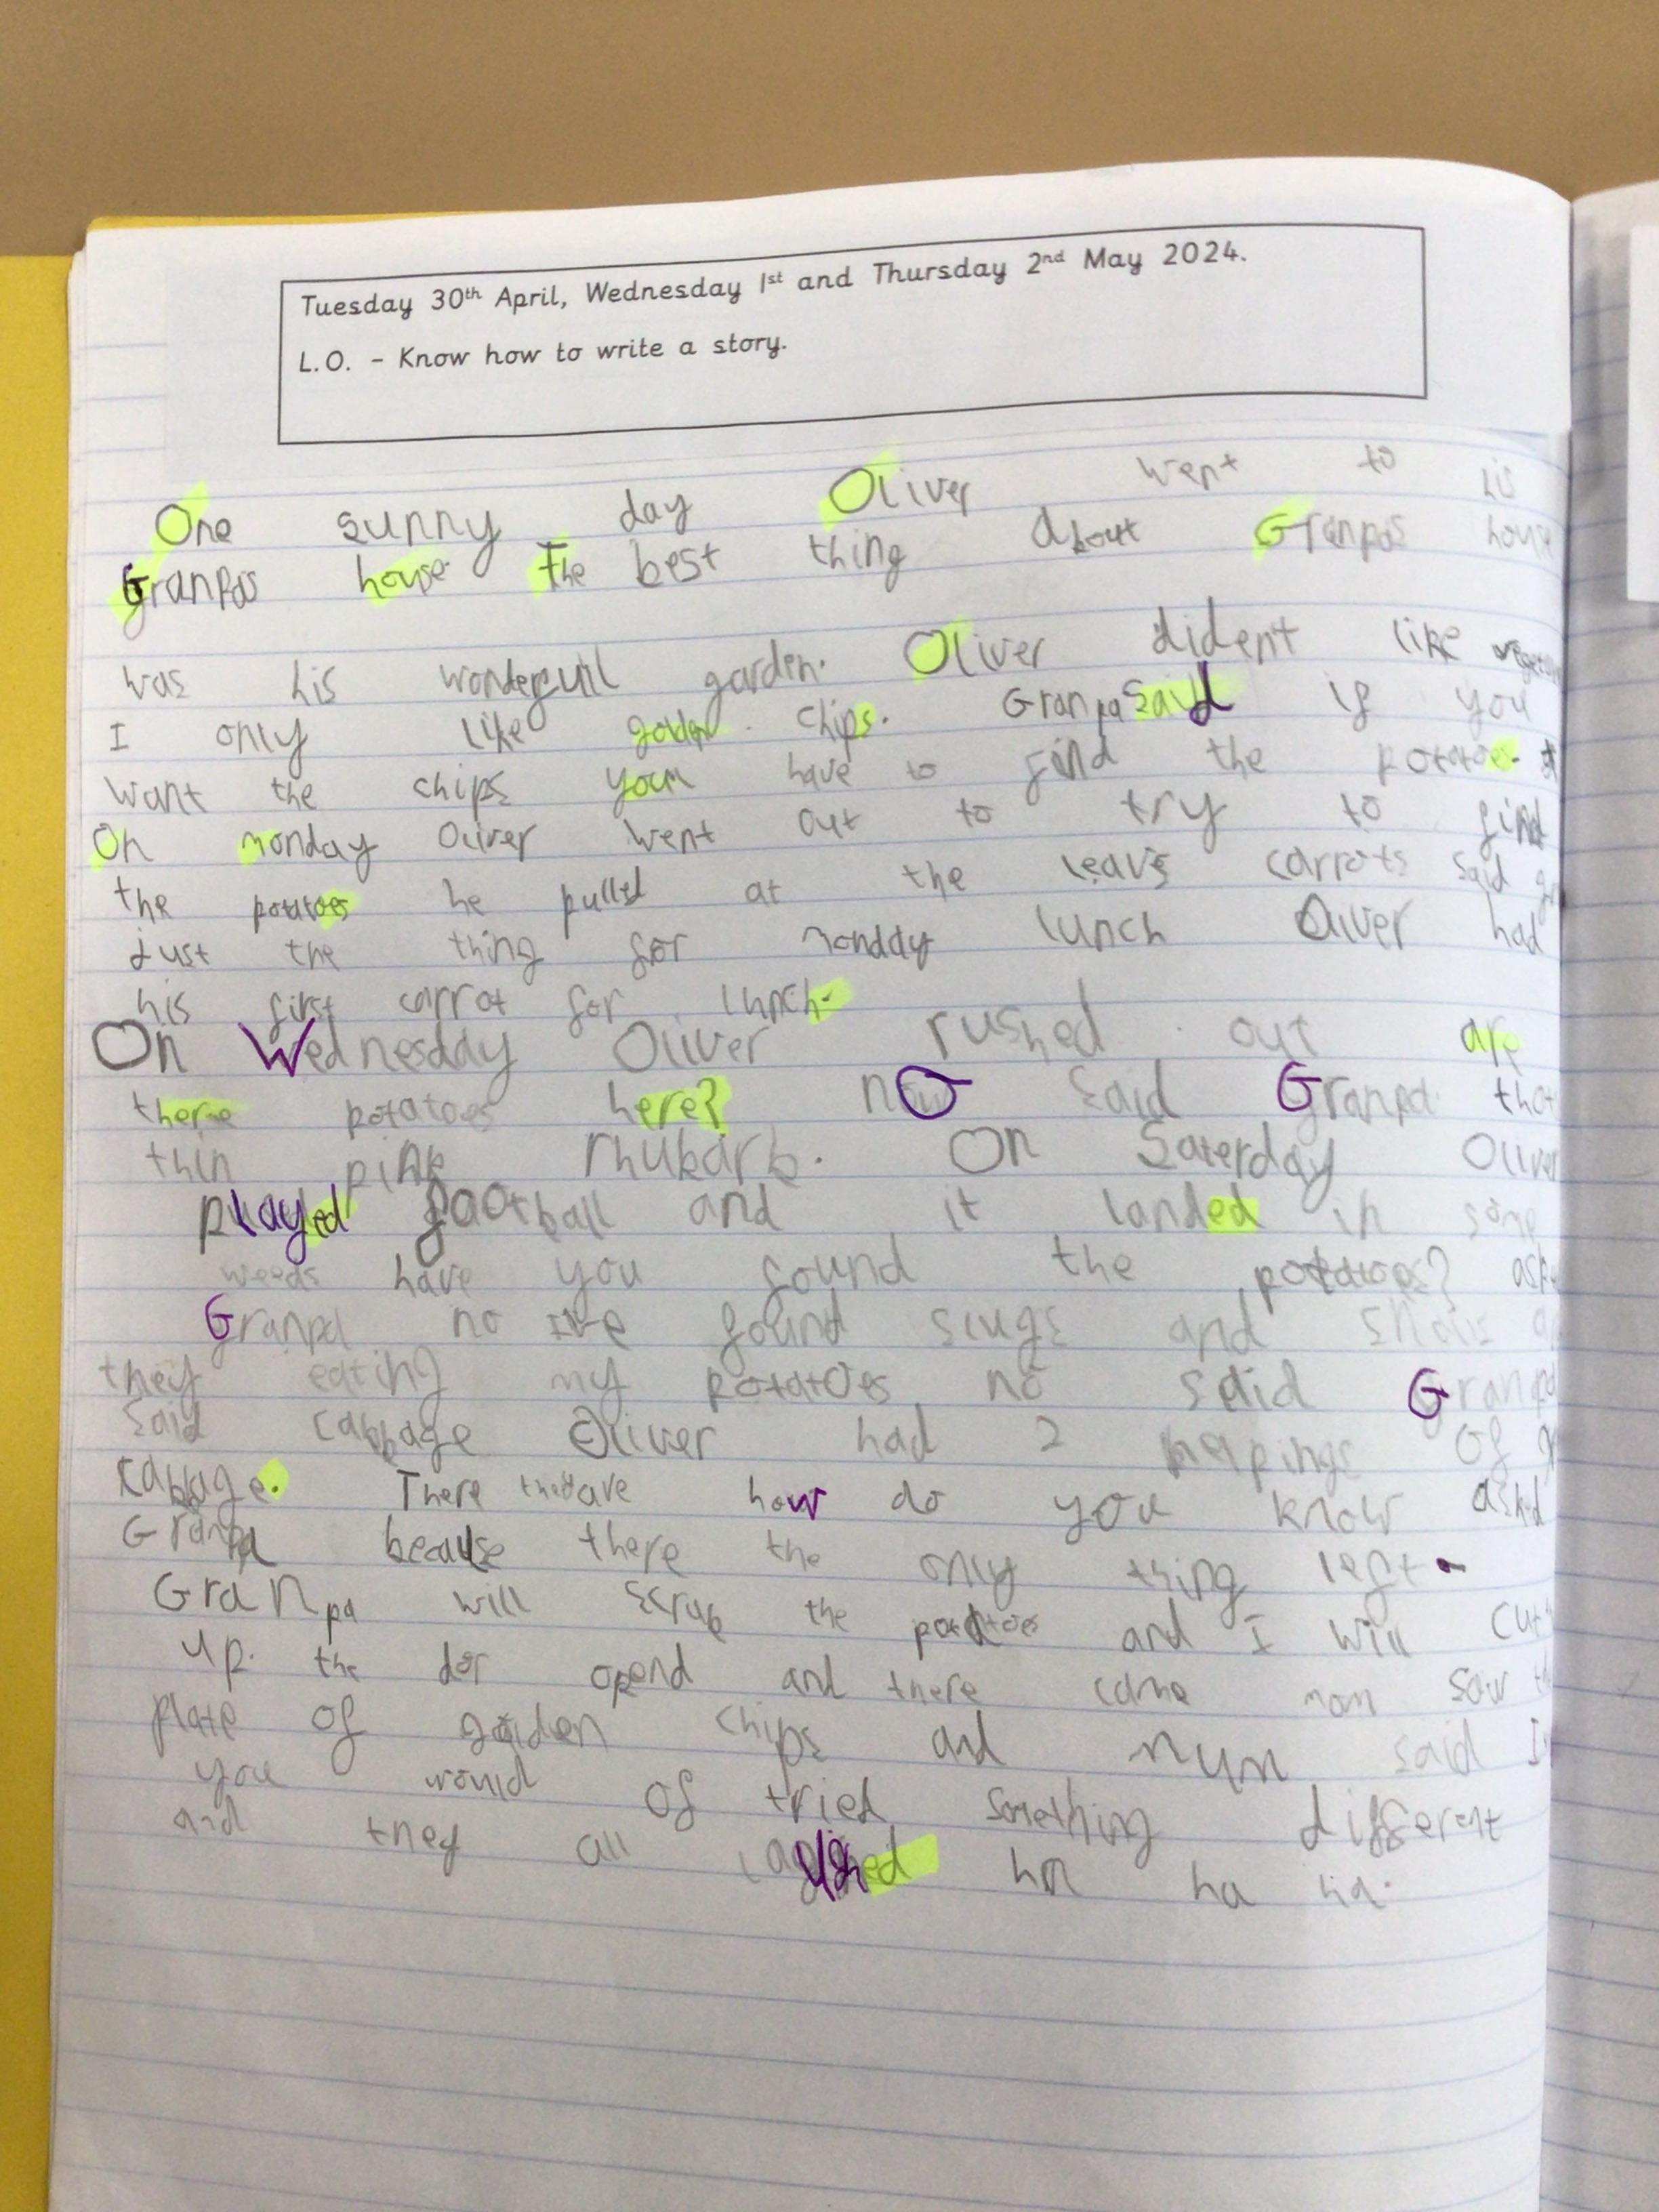 Tuesday 30th April, Wednesday 1st and Thursday 2nd May 2024.
L.O. - Know how to write a story.
One sunny day Oliver went to his
Granpas house. The best thing about Granpas house
was his wonderfull garden. Oliver dident like
I only like golden chips. Granpa said if you
want the chips you have to find the potatoes.
On monday Oliver went out to try to find
the potatoes he pulled at the leavs carrots said
just the thing for monday lunch Oliver had
his first carrot for lunch.
On Wednesday Oliver rushed out are
there potatoes here? no said Granpa that
thin pink rhubarb. On Saterday Oliver
played football and it landed in some
weeds have you found the potatoes?
Granpa no Ive found slugs and snals
they eating my potatoes no said Granpa
said cabbage Oliver had 2 helpings of
cabbage. There they are how do you know asked
Granpa because there the only thing left.
Granpa will scrub the potatoes and I will cut
up. the dor opend and there came mom saw
plate of golden chips and mum said
you would of tried something different
and they all laughed ha ha ha.